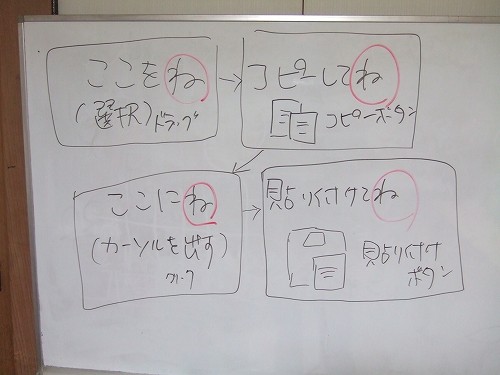 ここをね
(選択)ドラッグ
コピーしてね
コピーボタン
ここにね
(カーソルを出す)
クリック
貼り付けてね
貼り付け
ボタン